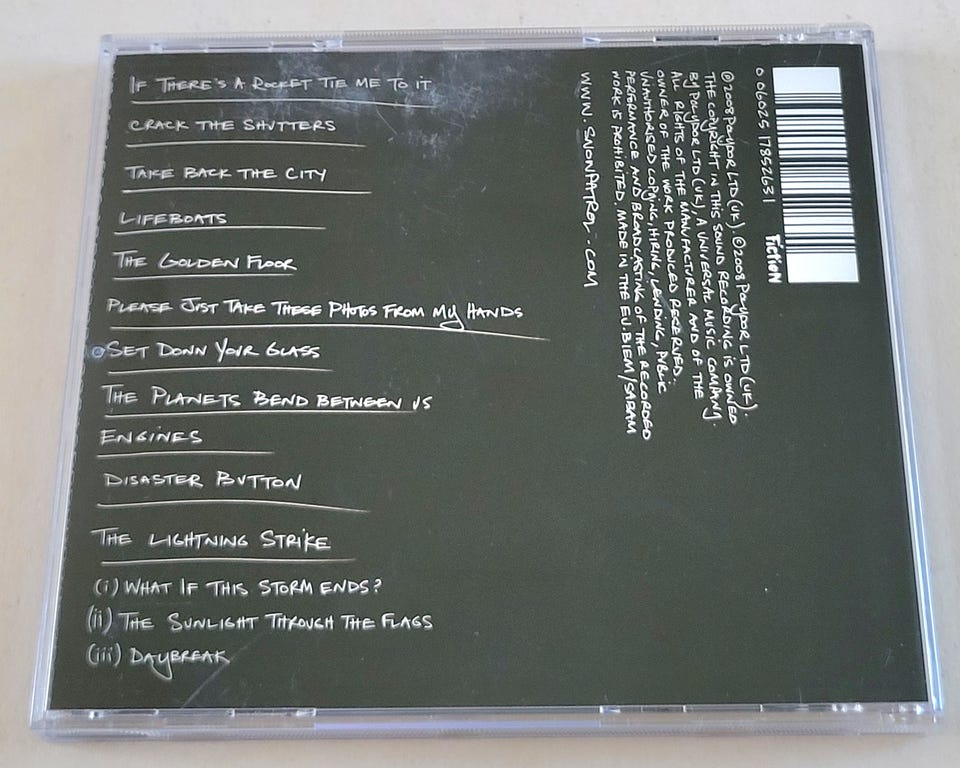 IF THERE'S A ROCKET TIE ME TO IT
CRACK THE SHUTTERS
TAKE BACK THE CITY
LIFEBOATS
THE GOLDEN FLOOR
PLEASE JUST TAKE THESE PHOTOS FROM MY HANDS
SET DOWN YOUR GLASS
THE PLANETS BEND BETWEEN US
ENGINES
DISASTER BUTTON
THE LIGHTNING STRIKE
(i) WHAT IF THIS STORM ENDS?
(ii) THE SUNLIGHT THROUGH THE FLAGS
(iii) DAYBREAK
0 06025 17852631
Fiction
℗2008 Polydor LTD (UK). ©2008 Polydor LTD (UK).
THE COPYRIGHT IN THIS SOUND RECORDING IS OWNED
BY POLYDOR LTD (UK), A UNIVERSAL MUSIC COMPANY.
ALL RIGHTS OF THE MANUFACTURER AND OF THE
OWNER OF THE WORK PRODUCED RESERVED.
UNAUTHORISED COPYING, HIRING, LENDING, PUBLIC
PERFORMANCE AND BROADCASTING OF THE RECORDED
WORK IS PROHIBITED. MADE IN THE EU. BIEM/SABAM
WWW.SNOWPATROL.COM